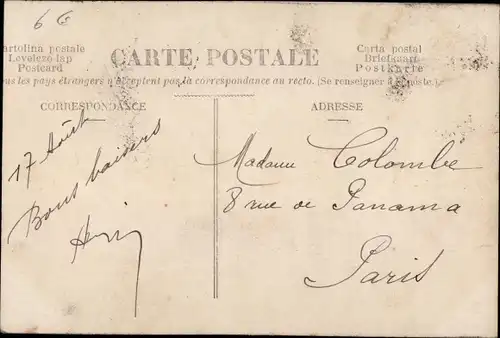 6 €
Cartolina postale
Levelezo-lap
Postcard
CARTE POSTALE
Carta postal
Briefkaart
Postkarte
Tous les pays étrangers n'acceptent pas la correspondance au recto. (Se renseigner à la poste.)
CORRESPONDANCE
ADRESSE
17 Août
Bons baisers
Henri
Madame Colombé
8 rue de Panama
Paris